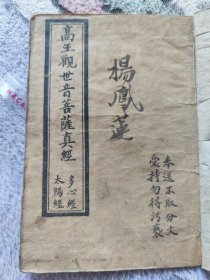 奉送不取分文
受持勿得污褻
楊鳳蓮
高王觀世音菩薩真經
多心經
太陽經